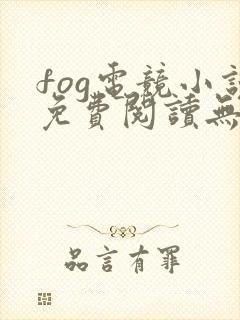 fog電競小說
免費閱讀無
品言有罪